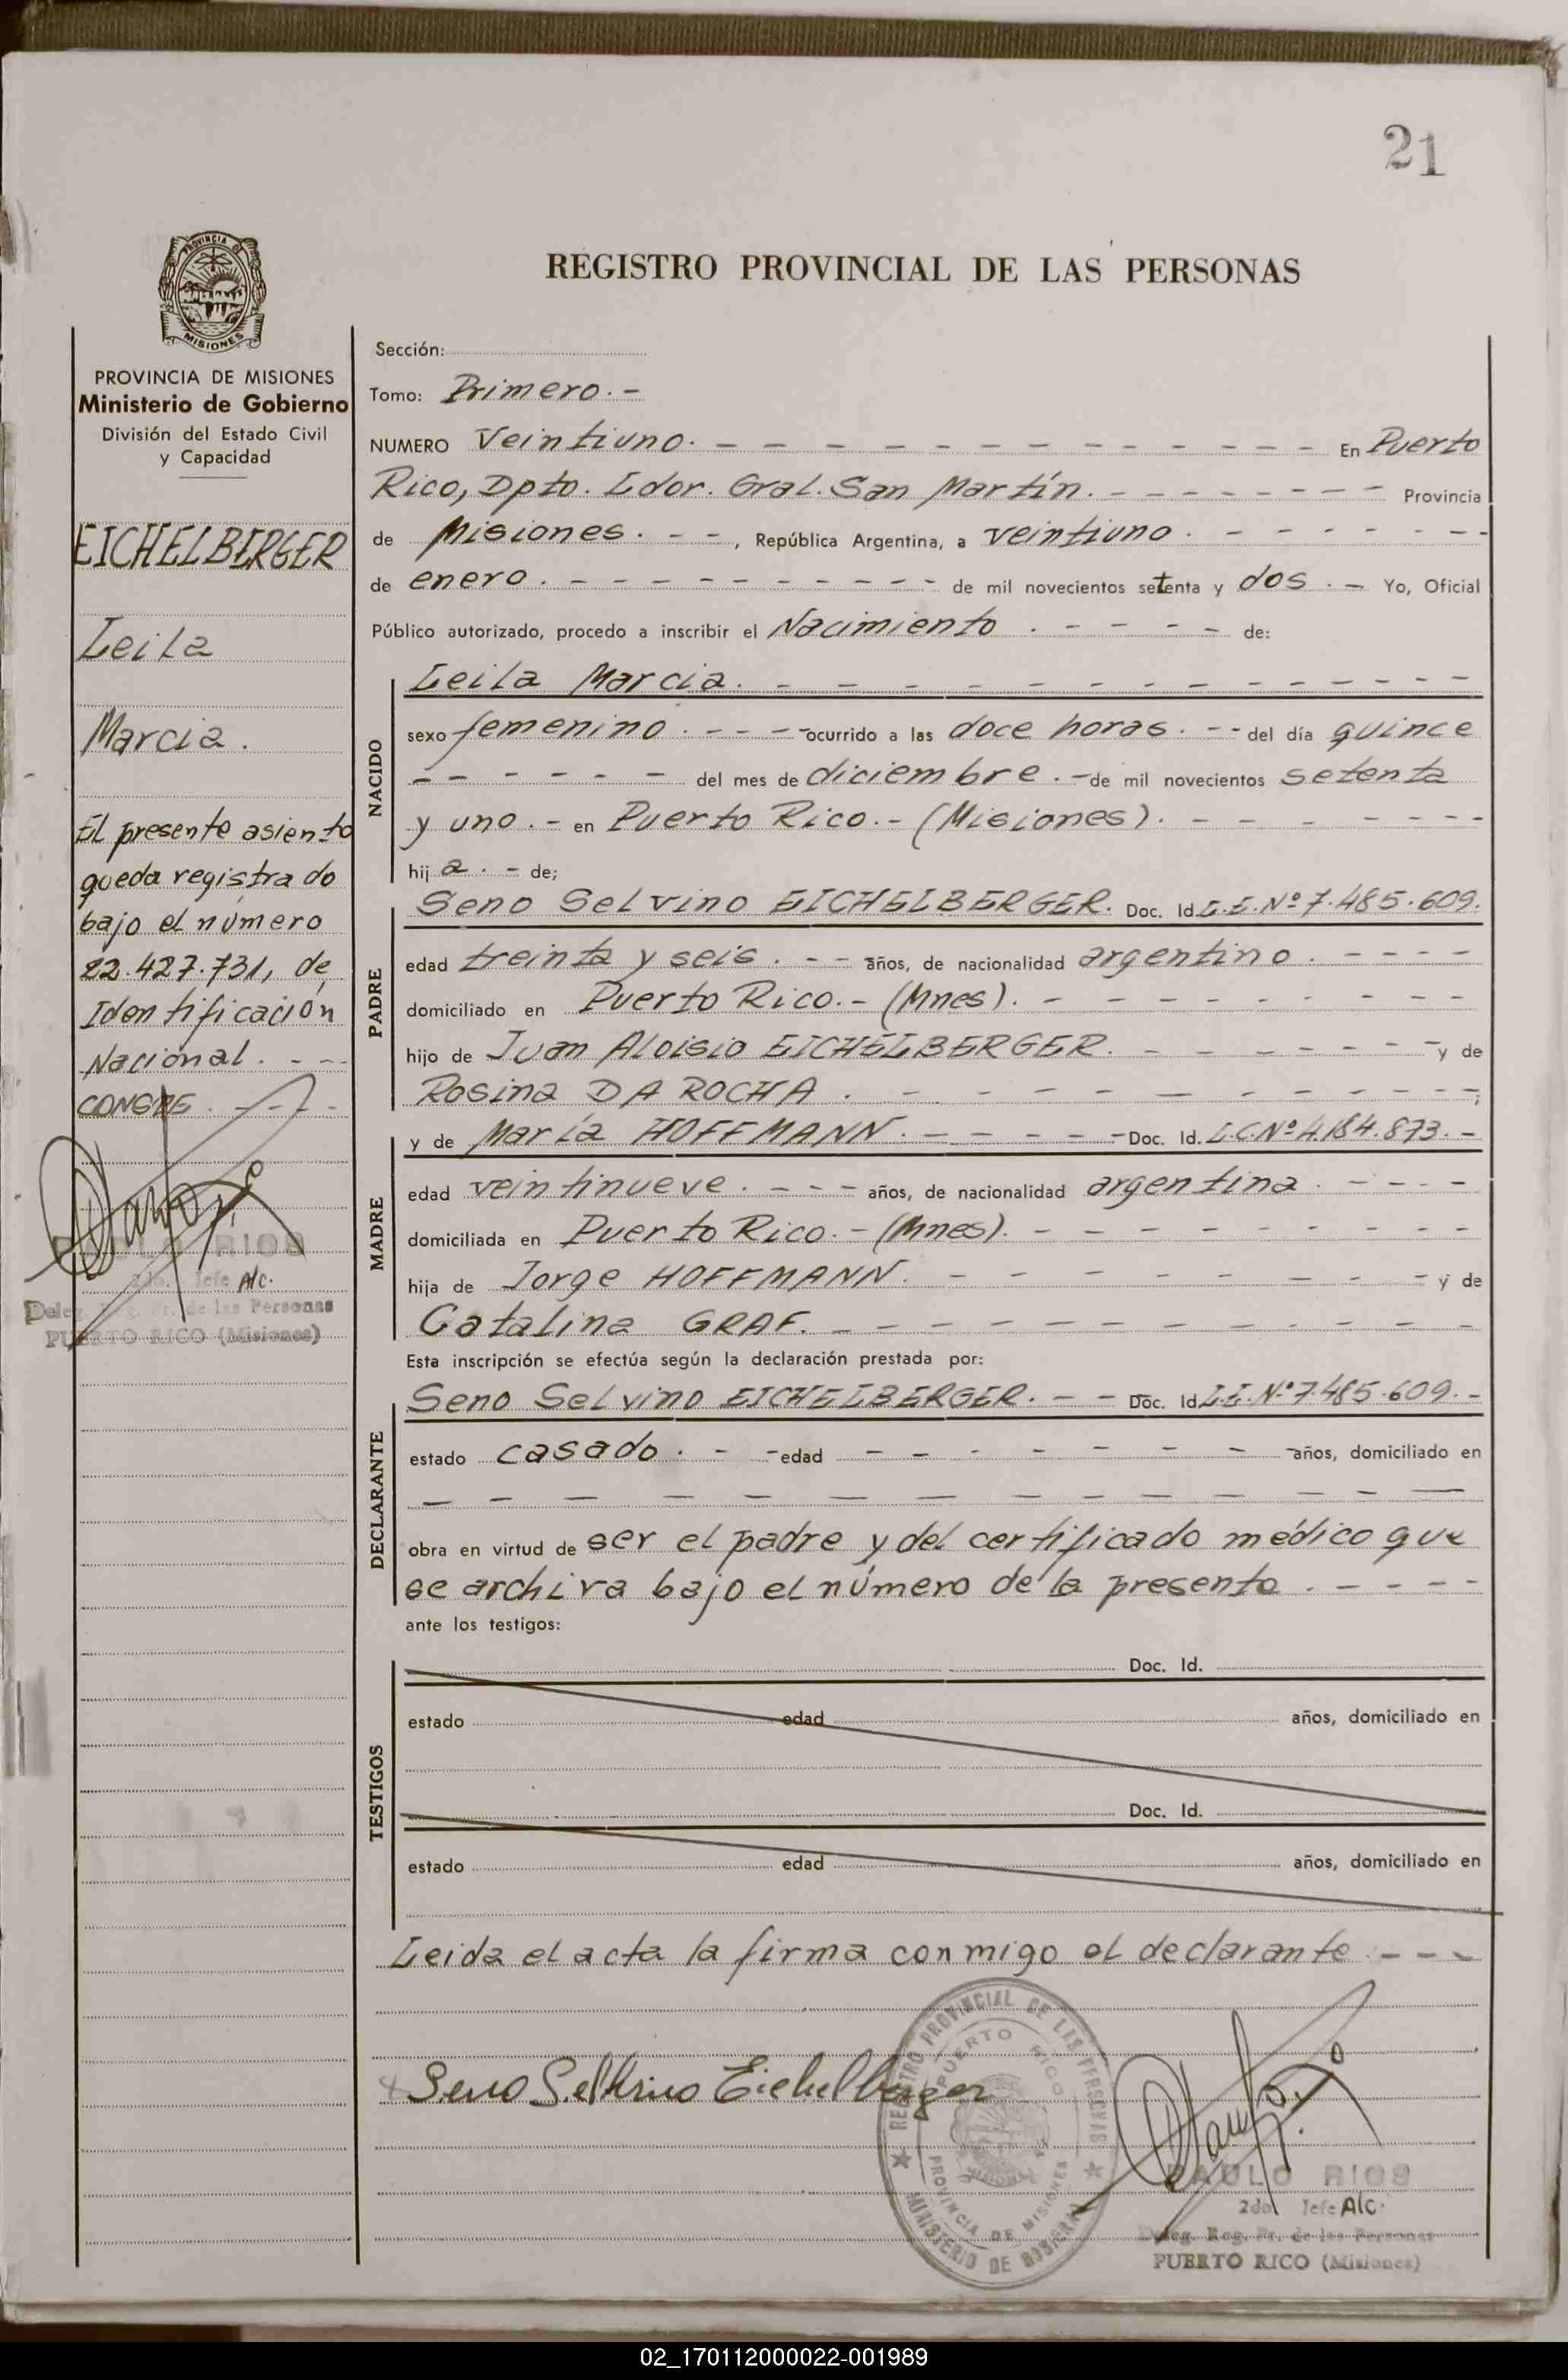 21
PROVINCIA DE
MISIONES
REGISTRO PROVINCIAL DE LAS PERSONAS
PROVINCIA DE MISIONES
Ministerio de Gobierno
División del Estado Civil
y Capacidad
EICHELBERGER
Leila
Marcia.
El presente asiento
queda registrado
bajo el número
22.427.731, de
Identificación
Nacional. - - -
CONSTE. - - -
PAULO RIOS
2do. Jefe A/c.
Deleg. Reg. Pr. de las Personas
PUERTO RICO (Misiones)
Sección:
Tomo: Primero. -
NUMERO Veintiuno. - - - - - - - - - - - - - En Puerto
Rico, Dpto. Ldor. Gral. San Martín. - - - - - - - - Provincia
de Misiones. - - -, República Argentina, a veintiuno. - - - - - - -
de enero. - - - - - - - - - - - de mil novecientos setenta y dos. - Yo, Oficial
Público autorizado, procedo a inscribir el Nacimiento. - - - - - de:
NACIDO
Leila Marcia. - - - - - - - - - - - - - -
sexo femenino. - - - - ocurrido a las doce horas. - - del día quince
- - - - - - - del mes de diciembre. - de mil novecientos setenta
y uno. - en Puerto Rico. - (Misiones). - - - - - - -
hij a. - de;
PADRE
Seno Selvino EICHELBERGER. Doc. Id. L.E. Nº 7.485.609.
edad treinta y seis. - - - años, de nacionalidad argentino. - - - -
domiciliado en Puerto Rico. - (Mnes). - - - - - - - - -
hijo de Juan Aloisio EICHELBERGER. - - - - - - - y de
Rosina DA ROCHA. - - - - - - - - - - ;
MADRE
y de María HOFFMANN. - - - - - Doc. Id. L.C. Nº 4.184.873. -
edad veintinueve. - - - - años, de nacionalidad argentina. - - - -
domiciliada en Puerto Rico. - (Mnes). - - - - - - - - -
hija de Jorge HOFFMANN. - - - - - - - - y de
Catalina GRAF. - - - - - - - - - - - -
Esta inscripción se efectúa según la declaración prestada por:
DECLARANTE
Seno Selvino EICHELBERGER. - - Doc. Id. L.E. Nº 7.485.609. -
estado casado. - - - edad - - - - - - - años, domiciliado en
- - - - - - - - - - - - - -
obra en virtud de ser el padre y del certificado médico que
se archiva bajo el número de la presente. - - - -
ante los testigos:
TESTIGOS
Doc. Id.
estado edad años, domiciliado en
Doc. Id.
estado edad años, domiciliado en
Leida el acta la firma conmigo el declarante. - - -
Seno Selvino Eichelberger
REGISTRO PROVINCIAL DE LAS PERSONAS
PUERTO RICO
PROVINCIA DE MISIONES
MINISTERIO DE GOBIERNO
PAULO RIOS
2do. Jefe A/c.
Deleg. Reg. Pr. de las Personas
PUERTO RICO (Misiones)
02_170112000022-001989